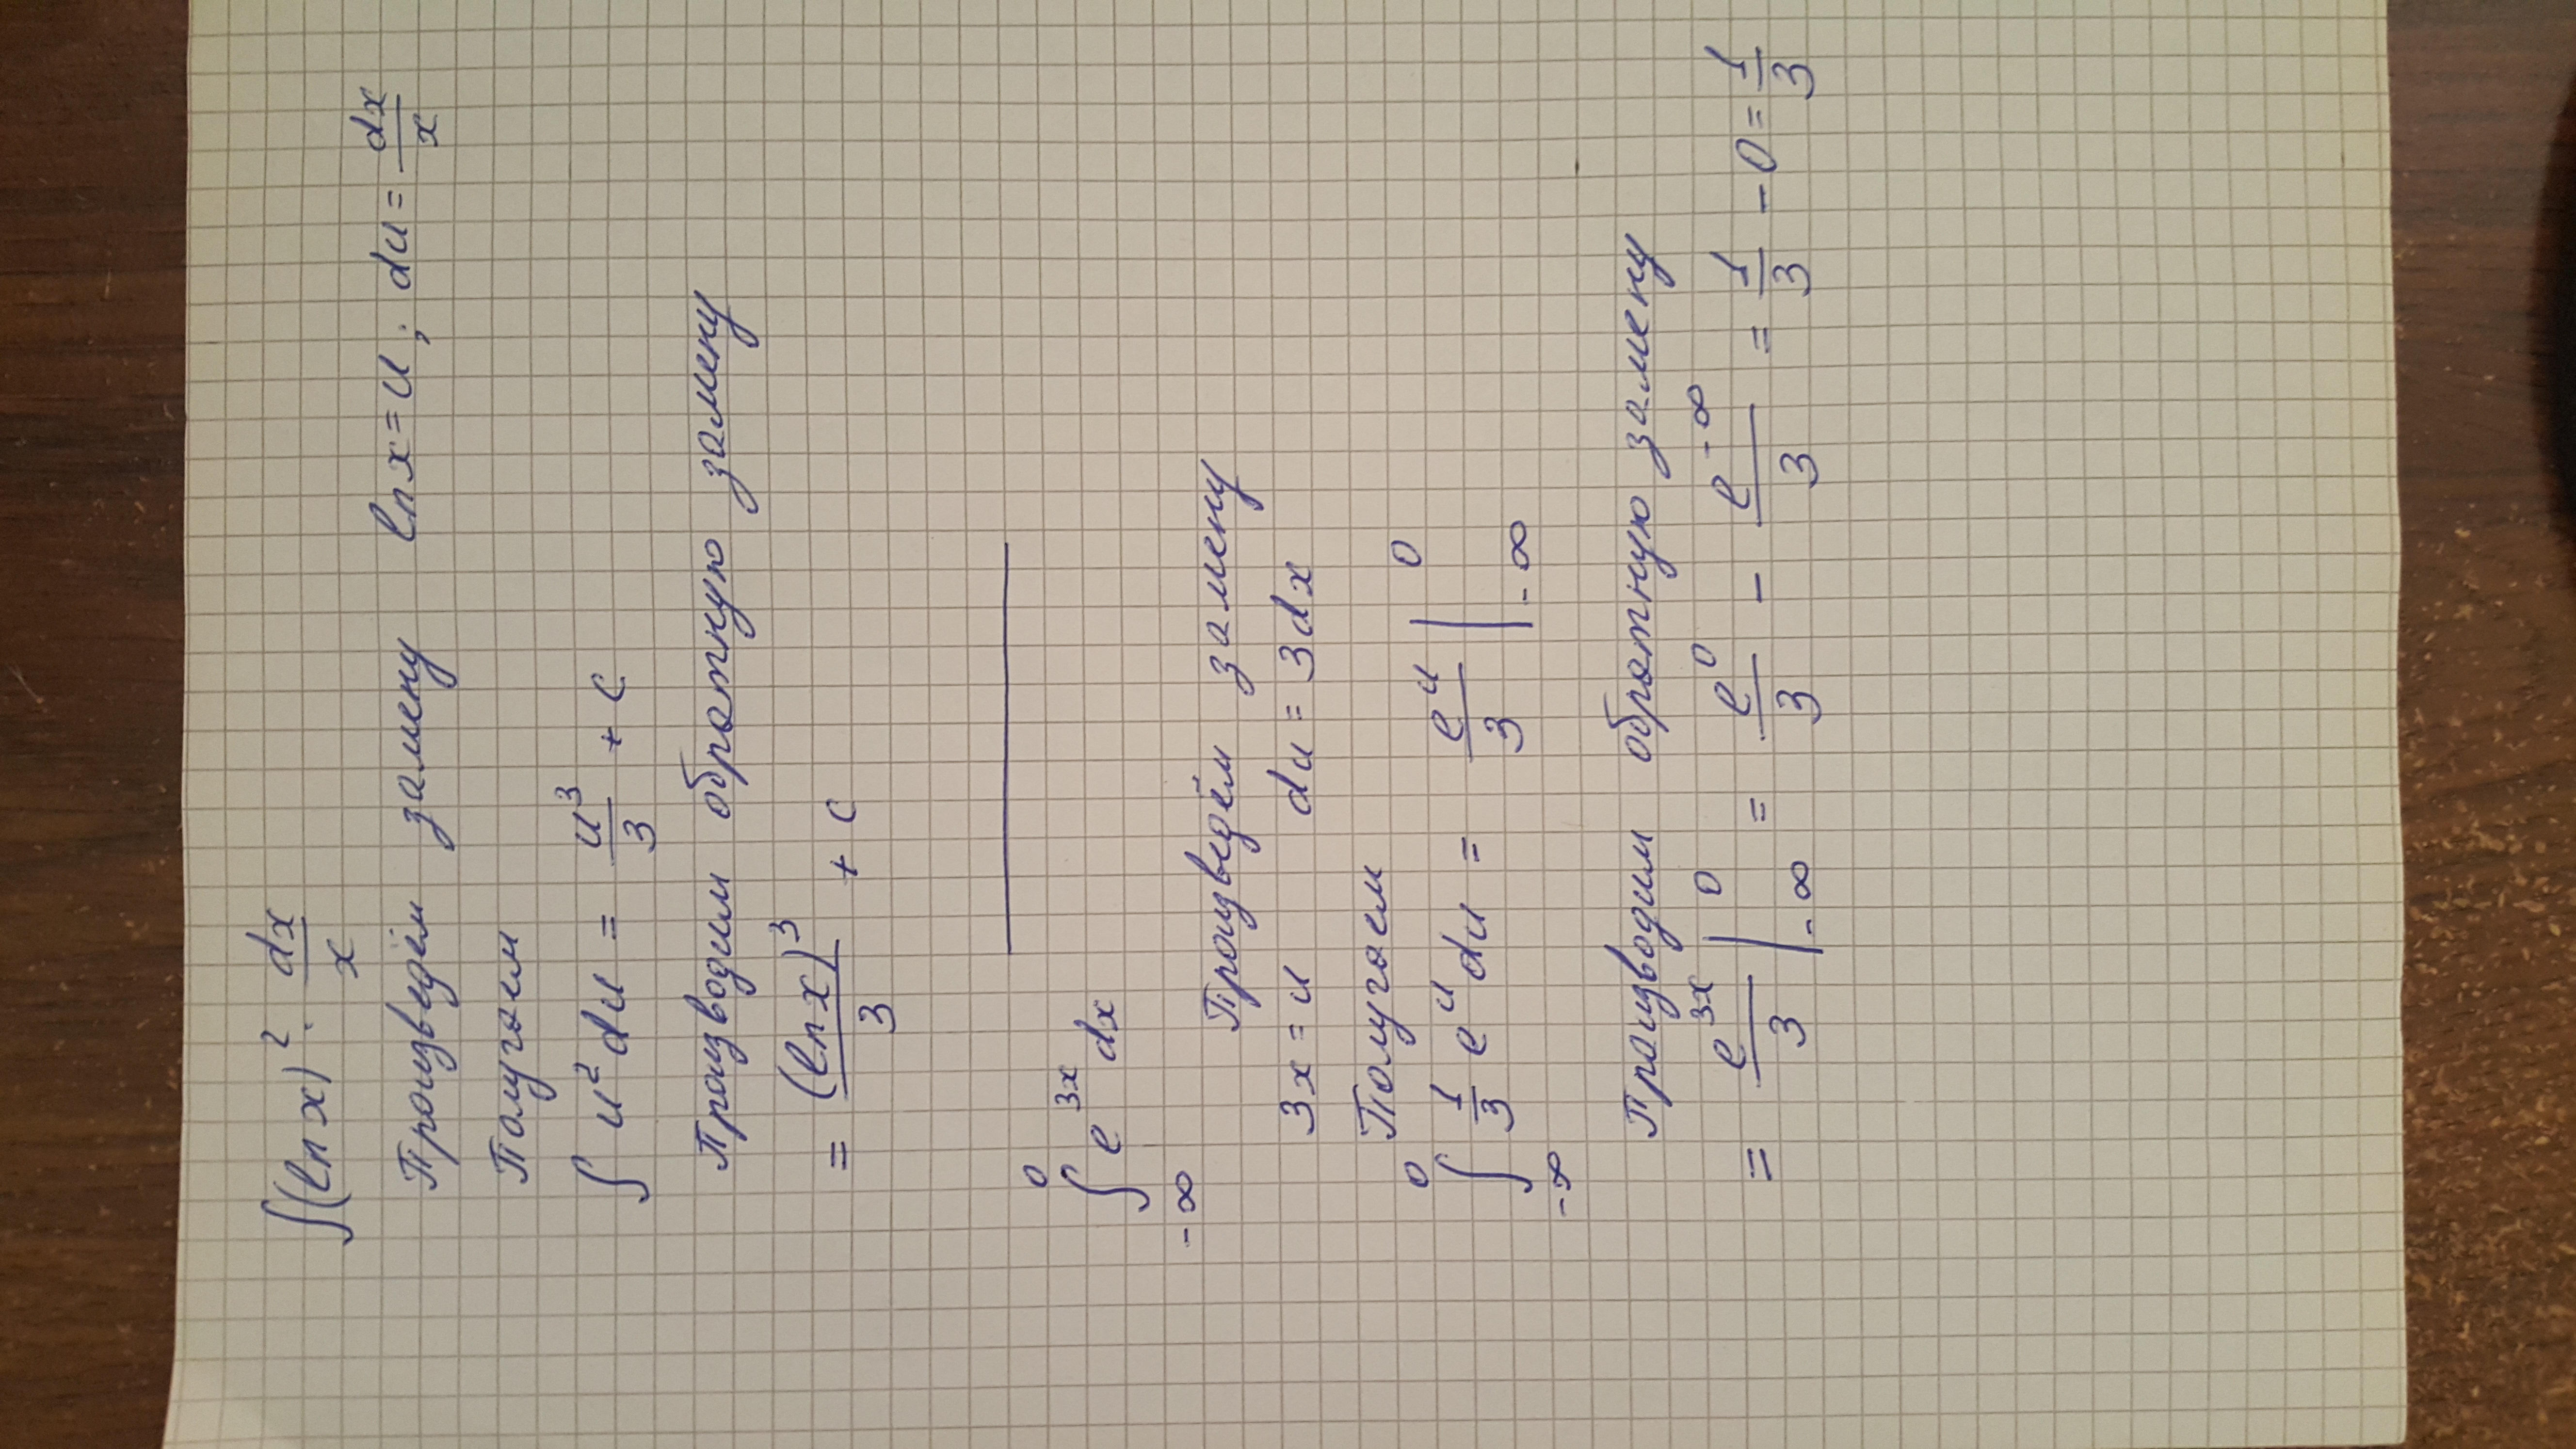 ∫(ln x)² · dx/x
Произведём замену ln x = u ; du = dx/x
Получаем
∫ u² du = u³/3 + c
Производим обратную замену
= (ln x)³/3 + c
∫_{-∞}^{0} e^{3x} dx
Произведём замену
3x = u du = 3dx
Получаем
∫_{-∞}^{0} 1/3 e^u du = e^u/3 |_{-∞}^{0}
Производим обратную замену
= e^{3x}/3 |_{-∞}^{0} = e^0/3 - e^{-∞}/3 = 1/3 - 0 = 1/3